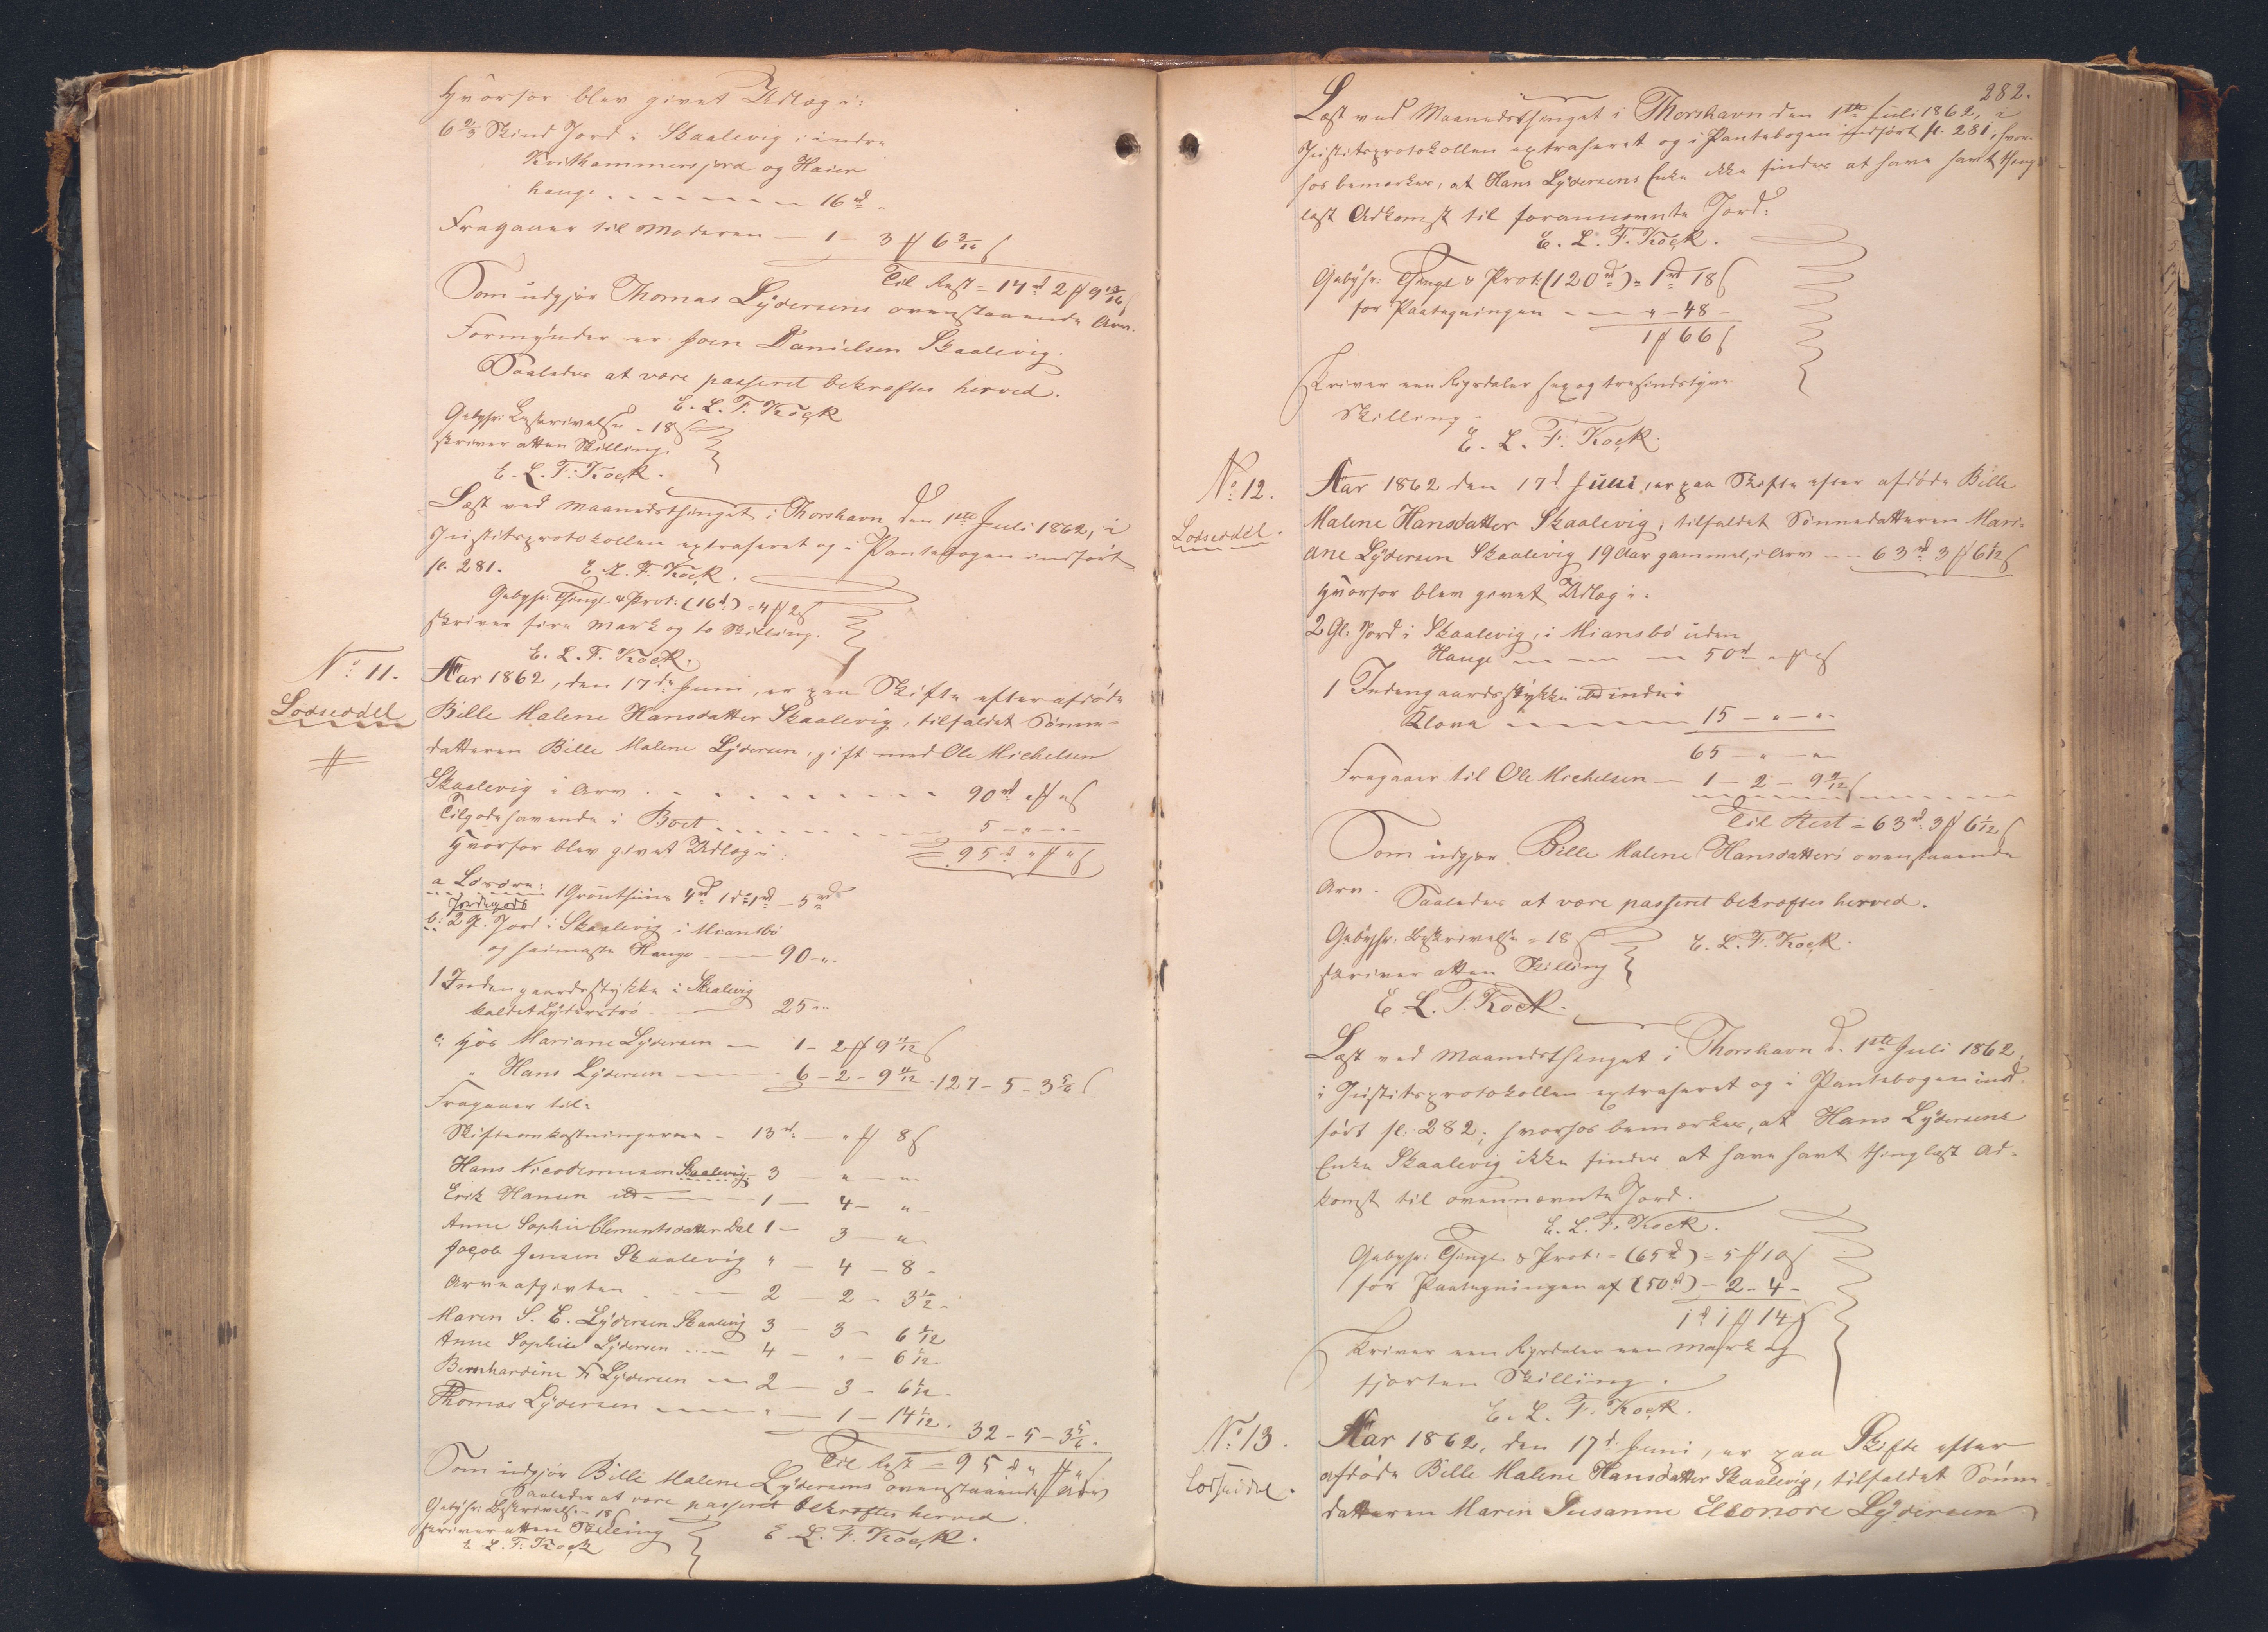 hvorfor blev givet Udlæg i:
6 2/3 Skind Jord i Skaalevig i indre
Kvithammersjord og Haien
hauge . . . . . . . . 16 rd -
Fragaaer til Moderen — 1 — 3 # 6 3/16 ß
Til Rest = 14 rd 2 # 9 13/16 ß
Som udgjør Thomas Lydersens ovenstaaende Arv.
Formynder er Joen Danielsen Skaalevig.
Saaledes at være passeret bekræftes herved.
E. L. F. Kock
Gebyhr: Beskrivelse = 18 ß
skriver atten Skilling.
E. L. F. Kock.
Læst ved Maanedsthinget i Thorshavn den 1ste Juli 1862, i
Justitsprotokollen extraheret og i Pantebogen indført
fl. 281. E. L. F. Kock.
Gebyhr: Thingl. & Prot: (16 rd) = 4 # 2 ß
skriver fire Mark og to Skilling.
E. L. F. Kock.
No. 11.
Lodseddel
#
Aar 1862, den 17de Juni, er paa Skifte efter afdøde
Bille Malene Hansdatter Skaalevig, tilfaldet Sønne-
datteren Bille Malene Lydersen, gift med Ole Michelsen
Skaalevig i Arv . . . . . . . . . 90 rd " # " ß
Tilgodehavende i Boet . . . . . . . . 5 — " — "
hvorfor blev givet Udlæg i: 95 rd " # " ß
a Løsøre: 1 4 rd 1 1 rd — 5 rd
Jordegods
b: 2 Gl. Jord i Skaalevig i Miansbø
og heimaste Hauge — 90 - " -
1 Indengaardsstykke i Skaalevig
kaldet Lyderstrø . . — 25 " "
c: hos Mariane Lydersen — 1 — 2 # 9 11/12 ß
" Hans Lydersen — 6 — 2 — 9 11/12 . 127 — 5 — 3 5/6 ß
Fragaaer til:
Skifteomkostningerne — 13 rd — " # 8 ß
Hans Nicodemussen Skaalevig 3 — " — "
Erik Hansen itd — 1 — 4 — " —
Anne Sophie Clementsdatter Dal 1 — 3 — "
Jacob Jensen Skaalevig " — 4 — 8 —
Arveafgivten . . — 2 — 2 — 3 1/2 —
Maren S. E. Lydersen Skaalevig 3 — 3 — 6 1/12
Anne Sophie Lydersen — 4 — " — 6 1/12
Bernhardine Lydersen — 2 — 3 — 6 1/12
Thomas Lydersen — " — 1 — 14 1/12 . 32 — 5 — 3 5/6
Til Rest = 95 rd " # " ß
Som udgjør Bille Malene Lydersens ovenstaaende Arv
Saaledes at være passeret bekræftes herved.
Gebyhr: Beskrivelse = 18 ß
skriver atten Skilling
E. L. F. Kock
E. L. F. Kock.
282.
Læst ved Maanedsthinget i Thorshavn den 1ste Juli 1862, i
Justitsprotokollen extraheret og i Pantebogen indført fl. 281, hvor-
hos bemærkes, at Hans Lydersens Enke ikke findes at have havt thing-
læst Adkomst til forannævnte Jord.
E. L. F. Kock.
Gebyhr: Thingl & Prot: (120 rd) = 1 rd 18 ß
for Paategningen — — " — 48 —
1 # 66 ß
skriver een Rigsdaler sex og tresindstyve
Skilling.
E. L. F. Kock.
No. 12.
Lodseddel.
Aar 1862 den 17d Juni, er paa Skifte efter afdøde Bille
Malene Hansdatter Skaalevig, tilfaldet Sønnedatteren Mari-
ane Lydersen Skaalevig 19 Aar gammel, i Arv — 63 rd 3 # 6 1/12 ß
hvorfor blev givet Udlæg i:
2 Gl: Jord i Skaalevig, i Miansbø uden
Hauge — — — 50 rd " # " ß
1 Indengaardsstykke indri
Klova — — — 15 — " — "
65 — " — "
Fragaaer til Ole Michelsen — 1 — 2 — 9 11/12 ß
Til Rest = 63 rd 3 # 6 1/12 ß
Som udgjør Bille Malene Hansdatters ovenstaaende
Arv.
Saaledes at være passeret bekræftes herved.
Gebyhr: Beskrivelse = 18 ß E. L. F. Kock.
skriver atten Skilling
E. L. F. Kock.
Læst ved Maanedsthinget i Thorshavn d. 1ste Juli 1862,
i Justitsprotokollen extraheret og i Pantebogen ind-
ført fl: 282; hvorhos bemærkes, at Hans Lydersens
Enke Skaalevig ikke findes at have havt thinglæst Ad-
komst til ovennævnte Jord.
E. L. F. Kock.
Gebyhr: Thingl. & Prot: = (65 rd) = 5 # 10 ß
for Paategningen af (50 rd) — 2 — 4 —
1 rd 1 # 14 ß
skriver een Rigsdaler een Mark og
fjorten Skilling.
E. L. F. Kock.
No. 13.
Lodseddel.
Aar 1862, den 17d Juni, er paa Skifte efter
afdøde Bille Malene Hansdatter Skaalevig, tilfaldet Sønne-
datteren Maren Susanne Elsonore Lydersen